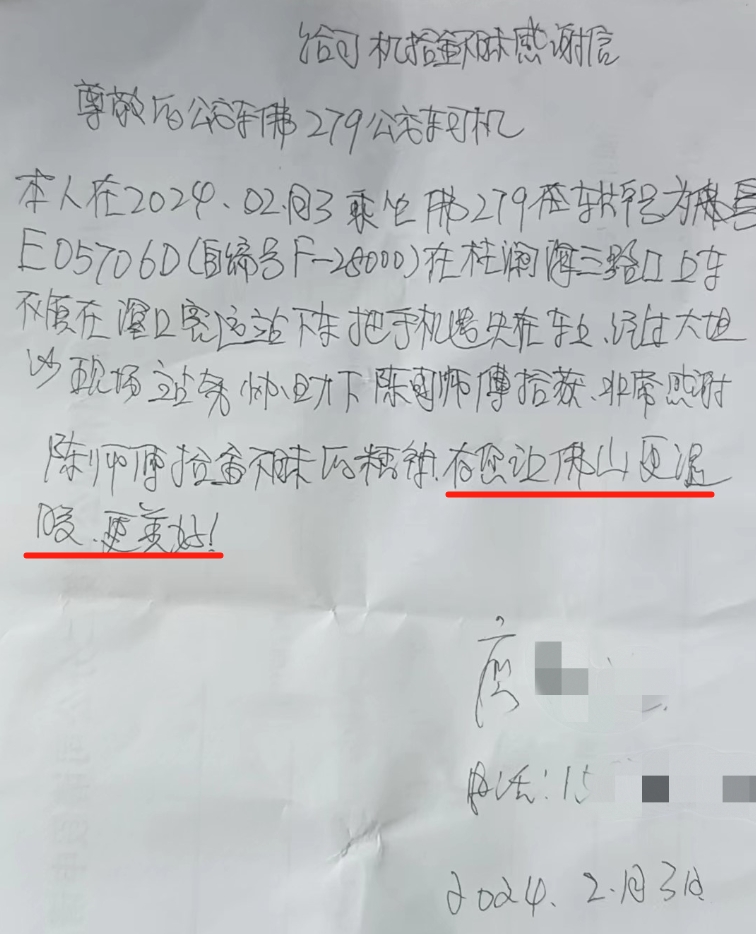 给司机拾金不昧感谢信
尊敬的公交车佛279公交车司机
本人在2024.02月3乘坐佛279座车牌号为粤
E05706D(自编号F-28000)在桂澜海三路口上车
不慎在滘口客运站下车把手机遗失在车上.经过大坦
沙现场站务协助下陈司师傅拾获.非常感谢
陈师傅拾金不昧的精神.有您让佛山更温
暖.更美好!
电话:15
2024.2.月3日